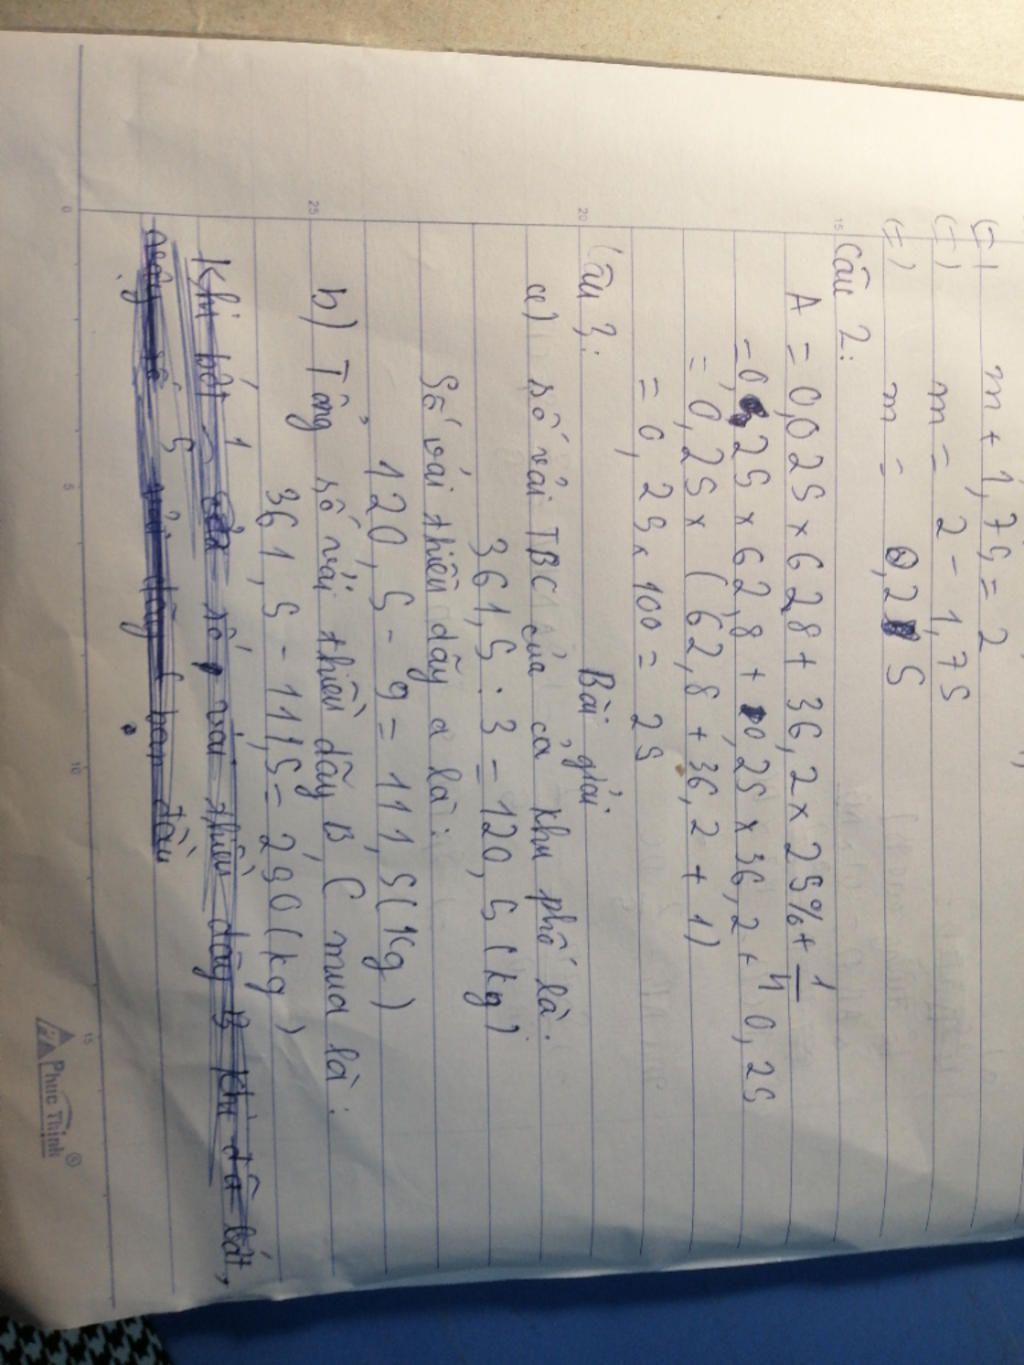 (=) m + 1,75 = 2
(=) m = 2 - 1,75
(=) m = 0,25
15
Câu 2:
A = 0,025 x 628 + 36,2 x 25% + 1/4
= 0,25 x 62,8 + 0,25 x 36,2 + 0,25
= 0,25 x (62,8 + 36,2 + 1)
= 0,25 x 100 = 25
20
Câu 3: Bài giải
a) số vải TBC của cả khu phố là:
361,5 : 3 = 120,5 (kg)
Số vải thiều dãy a là:
120,5 - 9 = 111,5 (kg)
25
b) Tổng số vải thiều dãy B, C mua là:
361,5 - 111,5 = 250 (kg)
Khi bớt 1 số vải thiều dãy B khi đã bớt,
5 ban đầu
0 5 10 15
Phuc Thinh ®